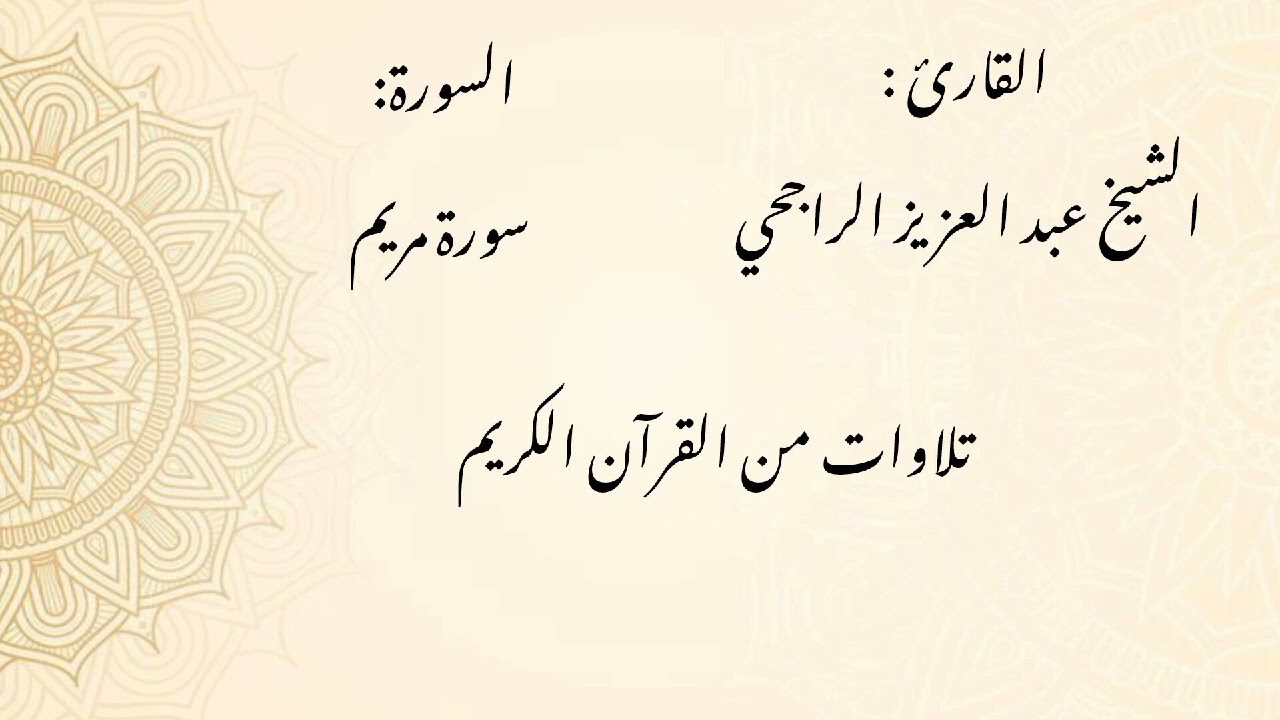 القارئ :
الشيخ عبد العزيز الراجحي
السورة:
سورة مريم
تلاوات من القرآن الكريم